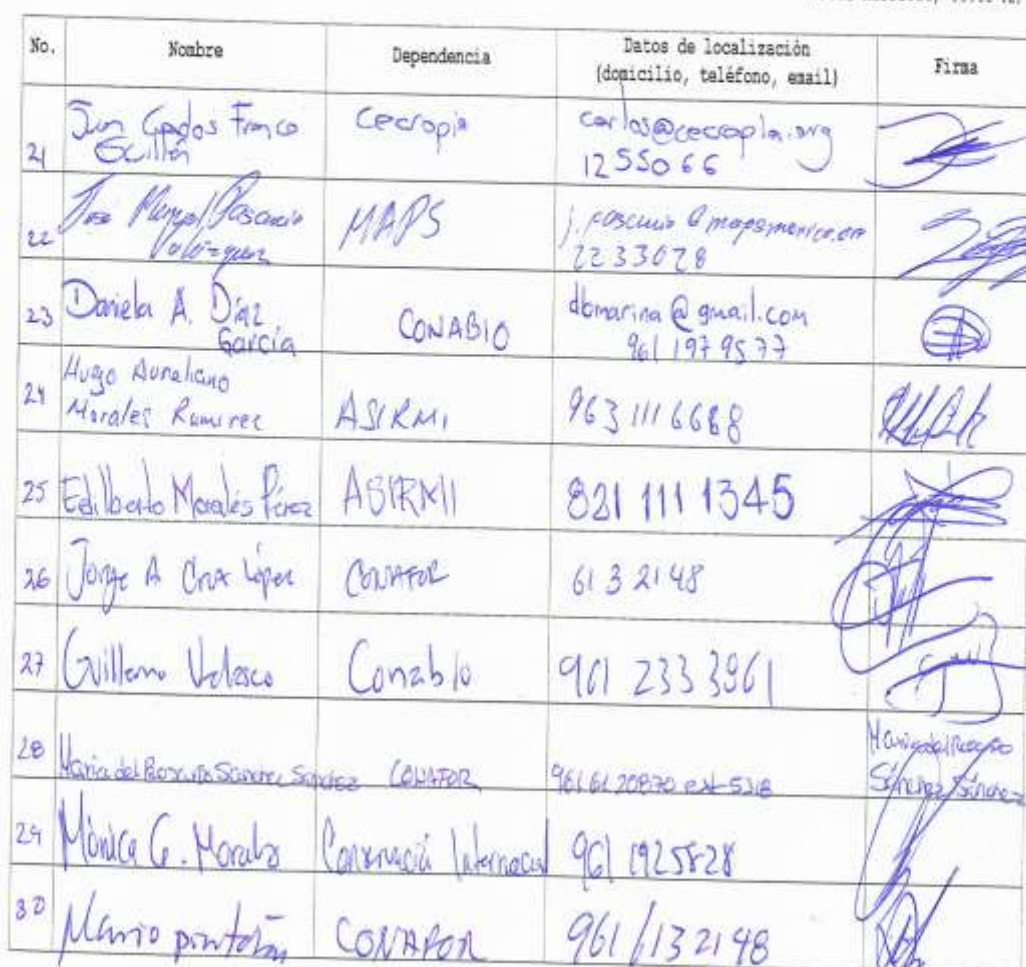 No. Nombre Dependencia Datos de localización Firma
(domicilio, teléfono, email)
21 Juan Carlos Franco Cecropia carlos@cecropia.org
Guillén 1255066
22 Jose Manuel Pascacio MAPS
Velázquez 2233028
23 Daniela A. Díaz CONABIO dbmarina@gmail.com
García 961 197 9577
24 Hugo Aureliano
Morales Ramirez ASIRMI 963 111 6688
25 Edilberto Morales Pérez ASIRMII 821 111 1345
26 Jorge A Cruz López CONAFOR 61 3 2148
27 Guillermo Velasco Conabio 961 233 3961
28 Maria del Rosario Sánchez Sánchez CONAFOR 961 61 20870 ext-5318 Maria del Rosario
Sánchez Sánchez
29 Mónica G. Morales Conservació Internacial 961 1925828
30 Mario CONAFOR 961/6132148